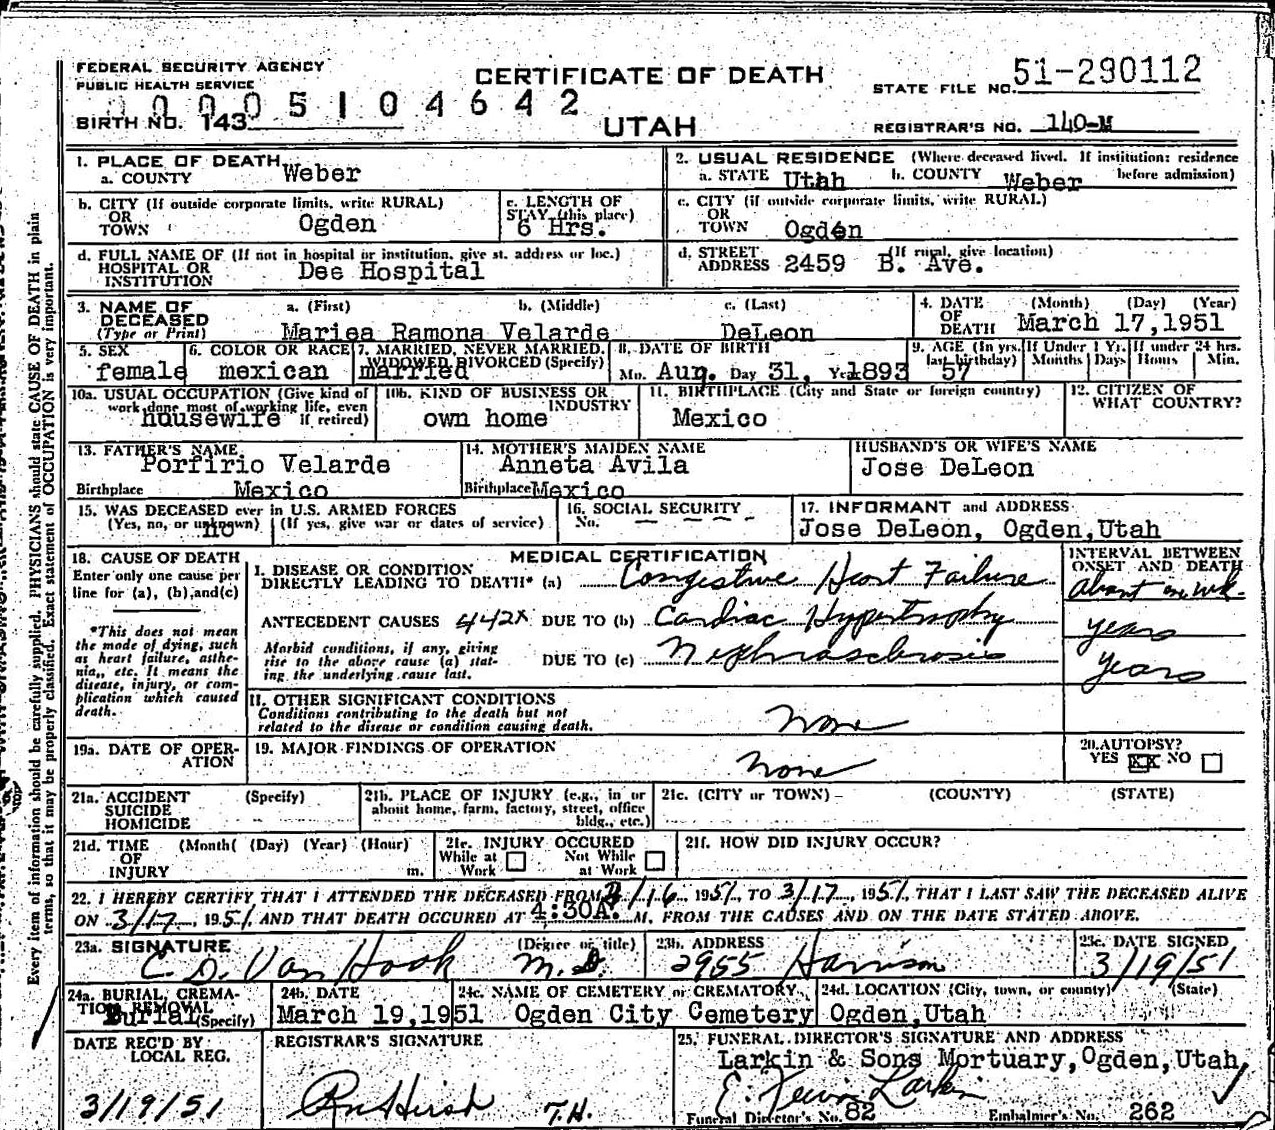 FEDERAL SECURITY AGENCY
PUBLIC HEALTH SERVICE
CERTIFICATE OF DEATH
STATE FILE NO. 51-290112
10005104642
BIRTH NO. 143
UTAH
REGISTRAR'S NO. 140-M
1. PLACE OF DEATH
a. COUNTY Weber
2. USUAL RESIDENCE (Where deceased lived. If institution: residence before admission)
a. STATE Utah b. COUNTY Weber
b. CITY (If outside corporate limits, write RURAL)
OR
TOWN Ogden
c. LENGTH OF
STAY (this place)
6 Hrs.
c. CITY (if outside corporate limits, write RURAL)
OR
TOWN Ogden
d. FULL NAME OF (If not in hospital or institution, give st. address or loc.)
HOSPITAL OR
INSTITUTION Dee Hospital
d. STREET (If rural, give location)
ADDRESS 2459 B. Ave.
3. NAME OF
DECEASED
(Type or Print)
a. (First) b. (Middle) c. (Last)
Mariea Ramona Velarde DeLeon
4. DATE (Month) (Day) (Year)
OF
DEATH March 17,1951
5. SEX
female
6. COLOR OR RACE
mexican
7. MARRIED, NEVER MARRIED,
WIDOWED DIVORCED (Specify)
married
8. DATE OF BIRTH
Mo. Aug. Day 31, Yr. 1893
9. AGE (In yrs. last birthday)
57
If Under 1 Yr. If under 24 hrs.
Months Days Hours Min.
10a. USUAL OCCUPATION (Give kind of
work done most of working life, even
if retired)
housewife
10b. KIND OF BUSINESS OR
INDUSTRY
own home
11. BIRTHPLACE (City and State or foreign country)
Mexico
12. CITIZEN OF
WHAT COUNTRY?
13. FATHER'S NAME
Porfirio Velarde
Birthplace Mexico
14. MOTHER'S MAIDEN NAME
Anneta Avila
Birthplace Mexico
HUSBAND'S OR WIFE'S NAME
Jose DeLeon
15. WAS DECEASED ever in U.S. ARMED FORCES
(Yes, no, or unknown) (If yes, give war or dates of service)
no
16. SOCIAL SECURITY
No. — — - - -
17. INFORMANT and ADDRESS
Jose DeLeon, Ogden,Utah
18. CAUSE OF DEATH
Enter only one cause per
line for (a), (b),and(c)
*This does not mean
the mode of dying, such
as heart failure, asthe-
nia,, etc. It means the
disease, injury, or com-
plication which caused
death.
MEDICAL CERTIFICATION
I. DISEASE OR CONDITION
DIRECTLY LEADING TO DEATH* (a) Congestive Heart Failure
ANTECEDENT CAUSES 442x DUE TO (b) Cardiac Hypertrophy
Morbid conditions, if any, giving
rise to the above cause (a) stat-
ing the underlying cause last.
DUE TO (c) Nephrosclerosis
INTERVAL BETWEEN
ONSET AND DEATH
about one wk.
years
years
II. OTHER SIGNIFICANT CONDITIONS
Conditions contributing to the death but not
related to the disease or condition causing death.
none
19a. DATE OF OPER-
ATION
19. MAJOR FINDINGS OF OPERATION
none
20. AUTOPSY?
YES XX NO
21a. ACCIDENT (Specify)
SUICIDE
HOMICIDE
21b. PLACE OF INJURY (e.g., in or
about home, farm, factory, street, office
bldg., etc.)
21c. (CITY or TOWN) (COUNTY) (STATE)
21d. TIME (Month( (Day) (Year) (Hour)
OF
INJURY m.
21e. INJURY OCCURED
While at Work Not While at Work
21f. HOW DID INJURY OCCUR?
22. I HEREBY CERTIFY THAT I ATTENDED THE DECEASED FROM /16, 1951 TO 3/17, 1951, THAT I LAST SAW THE DECEASED ALIVE
ON 3/17, 1951 AND THAT DEATH OCCURED AT 4:30A. M, FROM THE CAUSES AND ON THE DATE STATED ABOVE.
23a. SIGNATURE (Degree or title)
C. D. Van Hook M.D.
23b. ADDRESS
2955 Harrison
23c. DATE SIGNED
3/19/51
24a. BURIAL, CREMA-
TION REMOVAL
(Specify)
Burial
24b. DATE
March 19,1951
24c. NAME OF CEMETERY or CREMATORY
Ogden City Cemetery
24d. LOCATION (City, town, or county) (State)
Ogden,Utah
DATE REC'D BY
LOCAL REG.
3/19/51
REGISTRAR'S SIGNATURE
T.H.
25. FUNERAL DIRECTOR'S SIGNATURE AND ADDRESS
Larkin & Sons Mortuary,Ogden,Utah
E. Larkin
Funeral Director's No. 82 Embalmer's No. 262
Every item of information should be carefully supplied. PHYSICIANS should state CAUSE OF DEATH in plain
terms, so that it may be properly classified. Exact statement of OCCUPATION is very important.